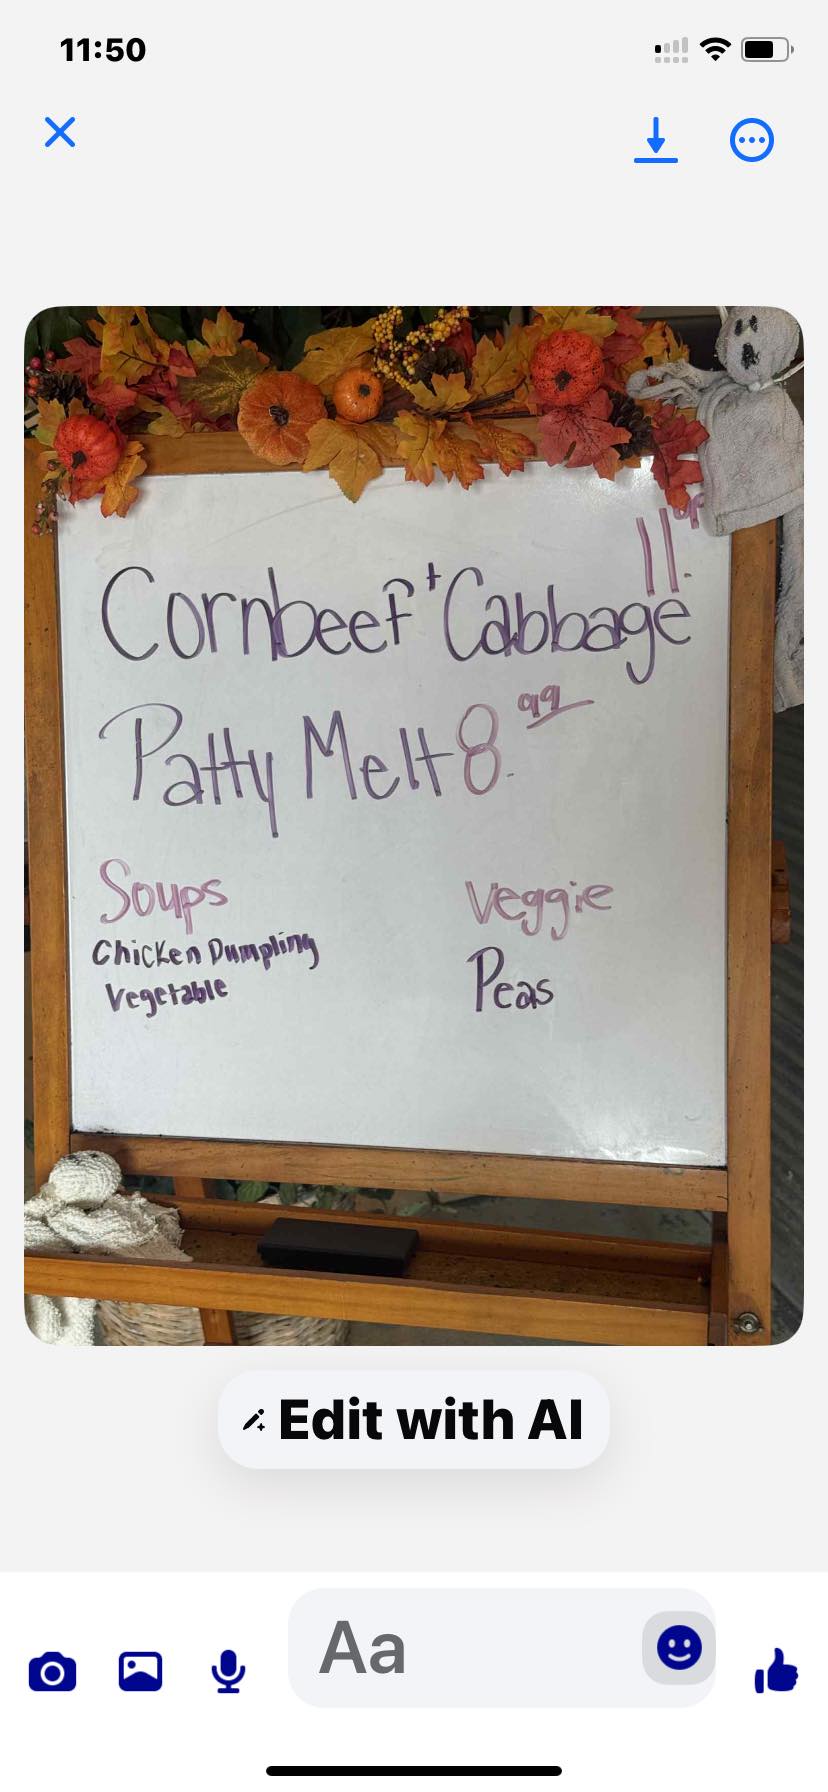 11:50
11.
Cornbeef + Cabbage
Patty Melt 8.99
Soups
Veggie
Chicken Dumpling
Vegetable
Peas
Edit with AI
Aa